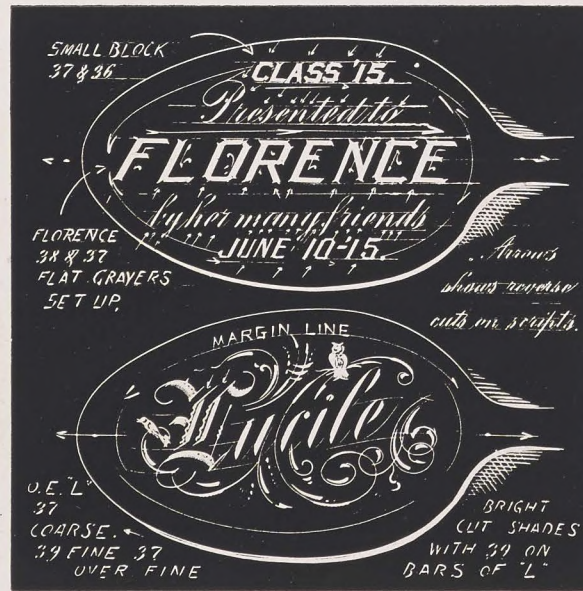 SMALL BLOCK
37 & 36
CLASS '15.
Presented to
FLORENCE
by her many friends
JUNE 10-15.
FLORENCE
38 & 37
FLAT GRAVERS
SET UP.
Arrows
shows reverse
cuts on scripts
MARGIN LINE
Lucile
O.E. "L"
37
COARSE.
39 FINE 37
OVER FINE
BRIGHT
CUT SHADES
WITH 39 ON
BARS OF "L"